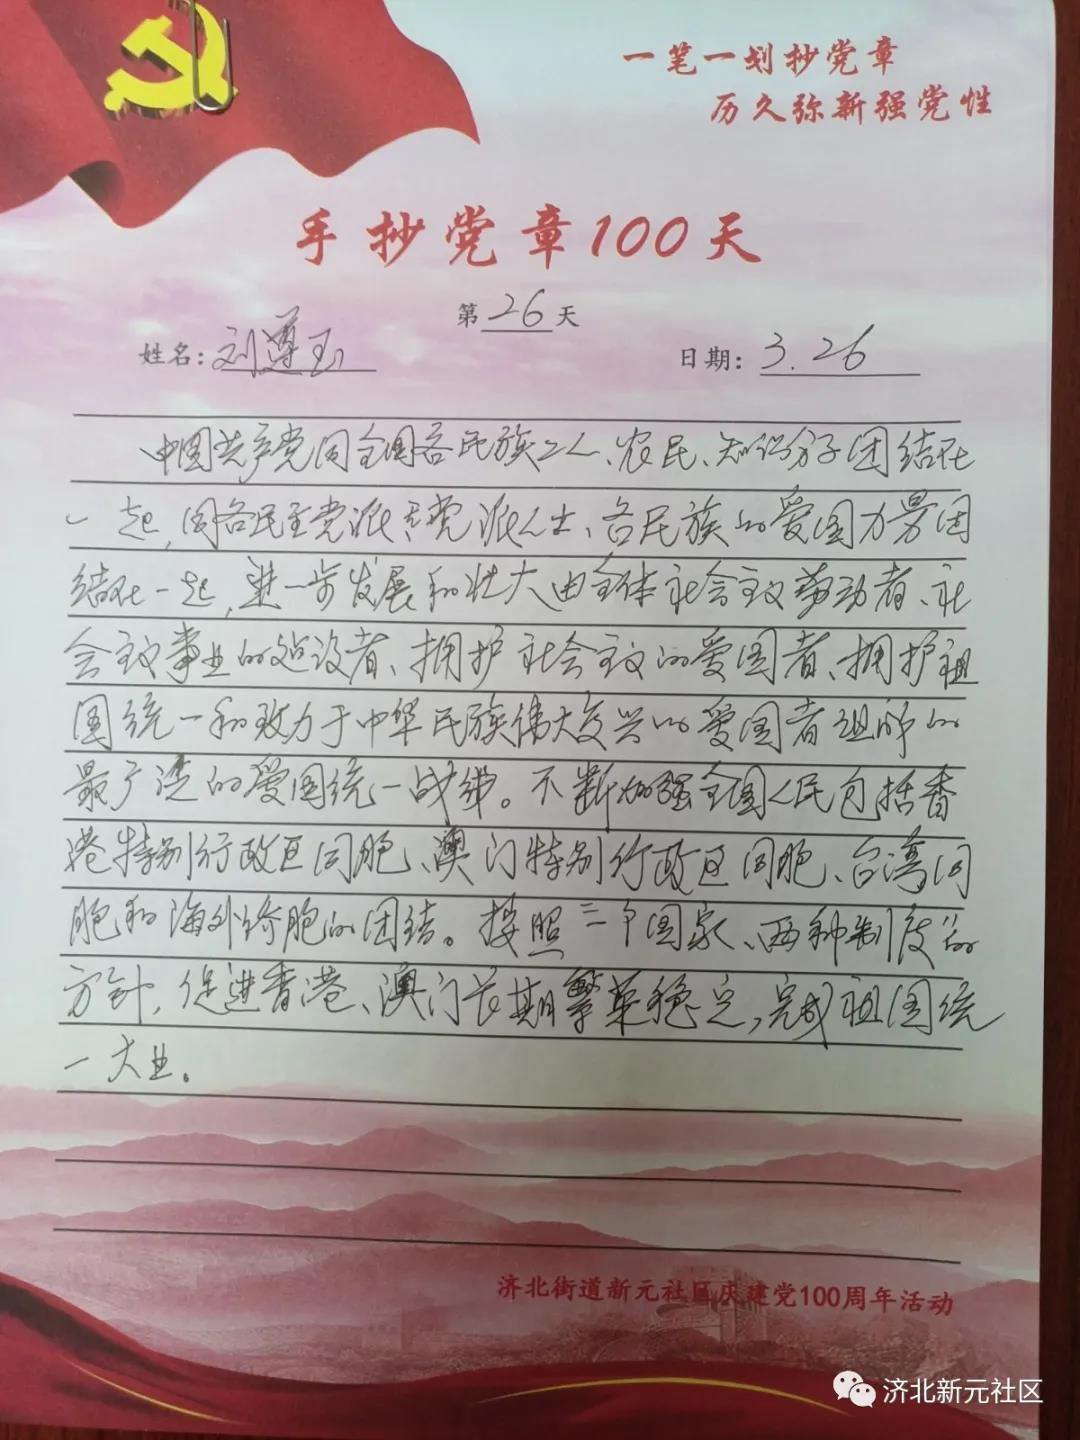 一笔一划抄党章
历久弥新强党性
手抄党章100天
第26天
姓名：刘遵玉
日期：3.26
中国共产党同全国各民族工人、农民、知识分子团结在
一起，同各民主党派、无党派人士、各民族的爱国力量团
结在一起，进一步发展和壮大由全体社会主义劳动者、社
会主义事业的建设者、拥护社会主义的爱国者、拥护祖
国统一和致力于中华民族伟大复兴的爱国者组成的
最广泛的爱国统一战线。不断加强全国人民包括香
港特别行政区同胞、澳门特别行政区同胞、台湾同
胞和海外侨胞的团结。按照“一个国家、两种制度”的
方针，促进香港、澳门长期繁荣稳定，完成祖国统
一大业。
济北街道新元社区庆建党100周年活动
济北新元社区